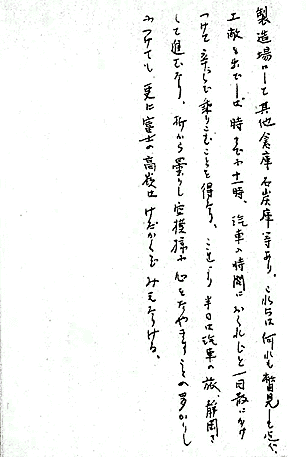 製造場にして其他倉庫石炭庫等あり、これらは何れも瞥見して
工廠を出でしは時まさに十一時、汽車の時間におくれじと一目散にかけ
つけて辛うじて乗りこむことを得たり、これより半日は汽車の旅、静岡
して進むなり、折から曇りし空模様に心をなやますことの多かりし
につけても、更に富士の高嶺は けだかくぞ みえたりける。